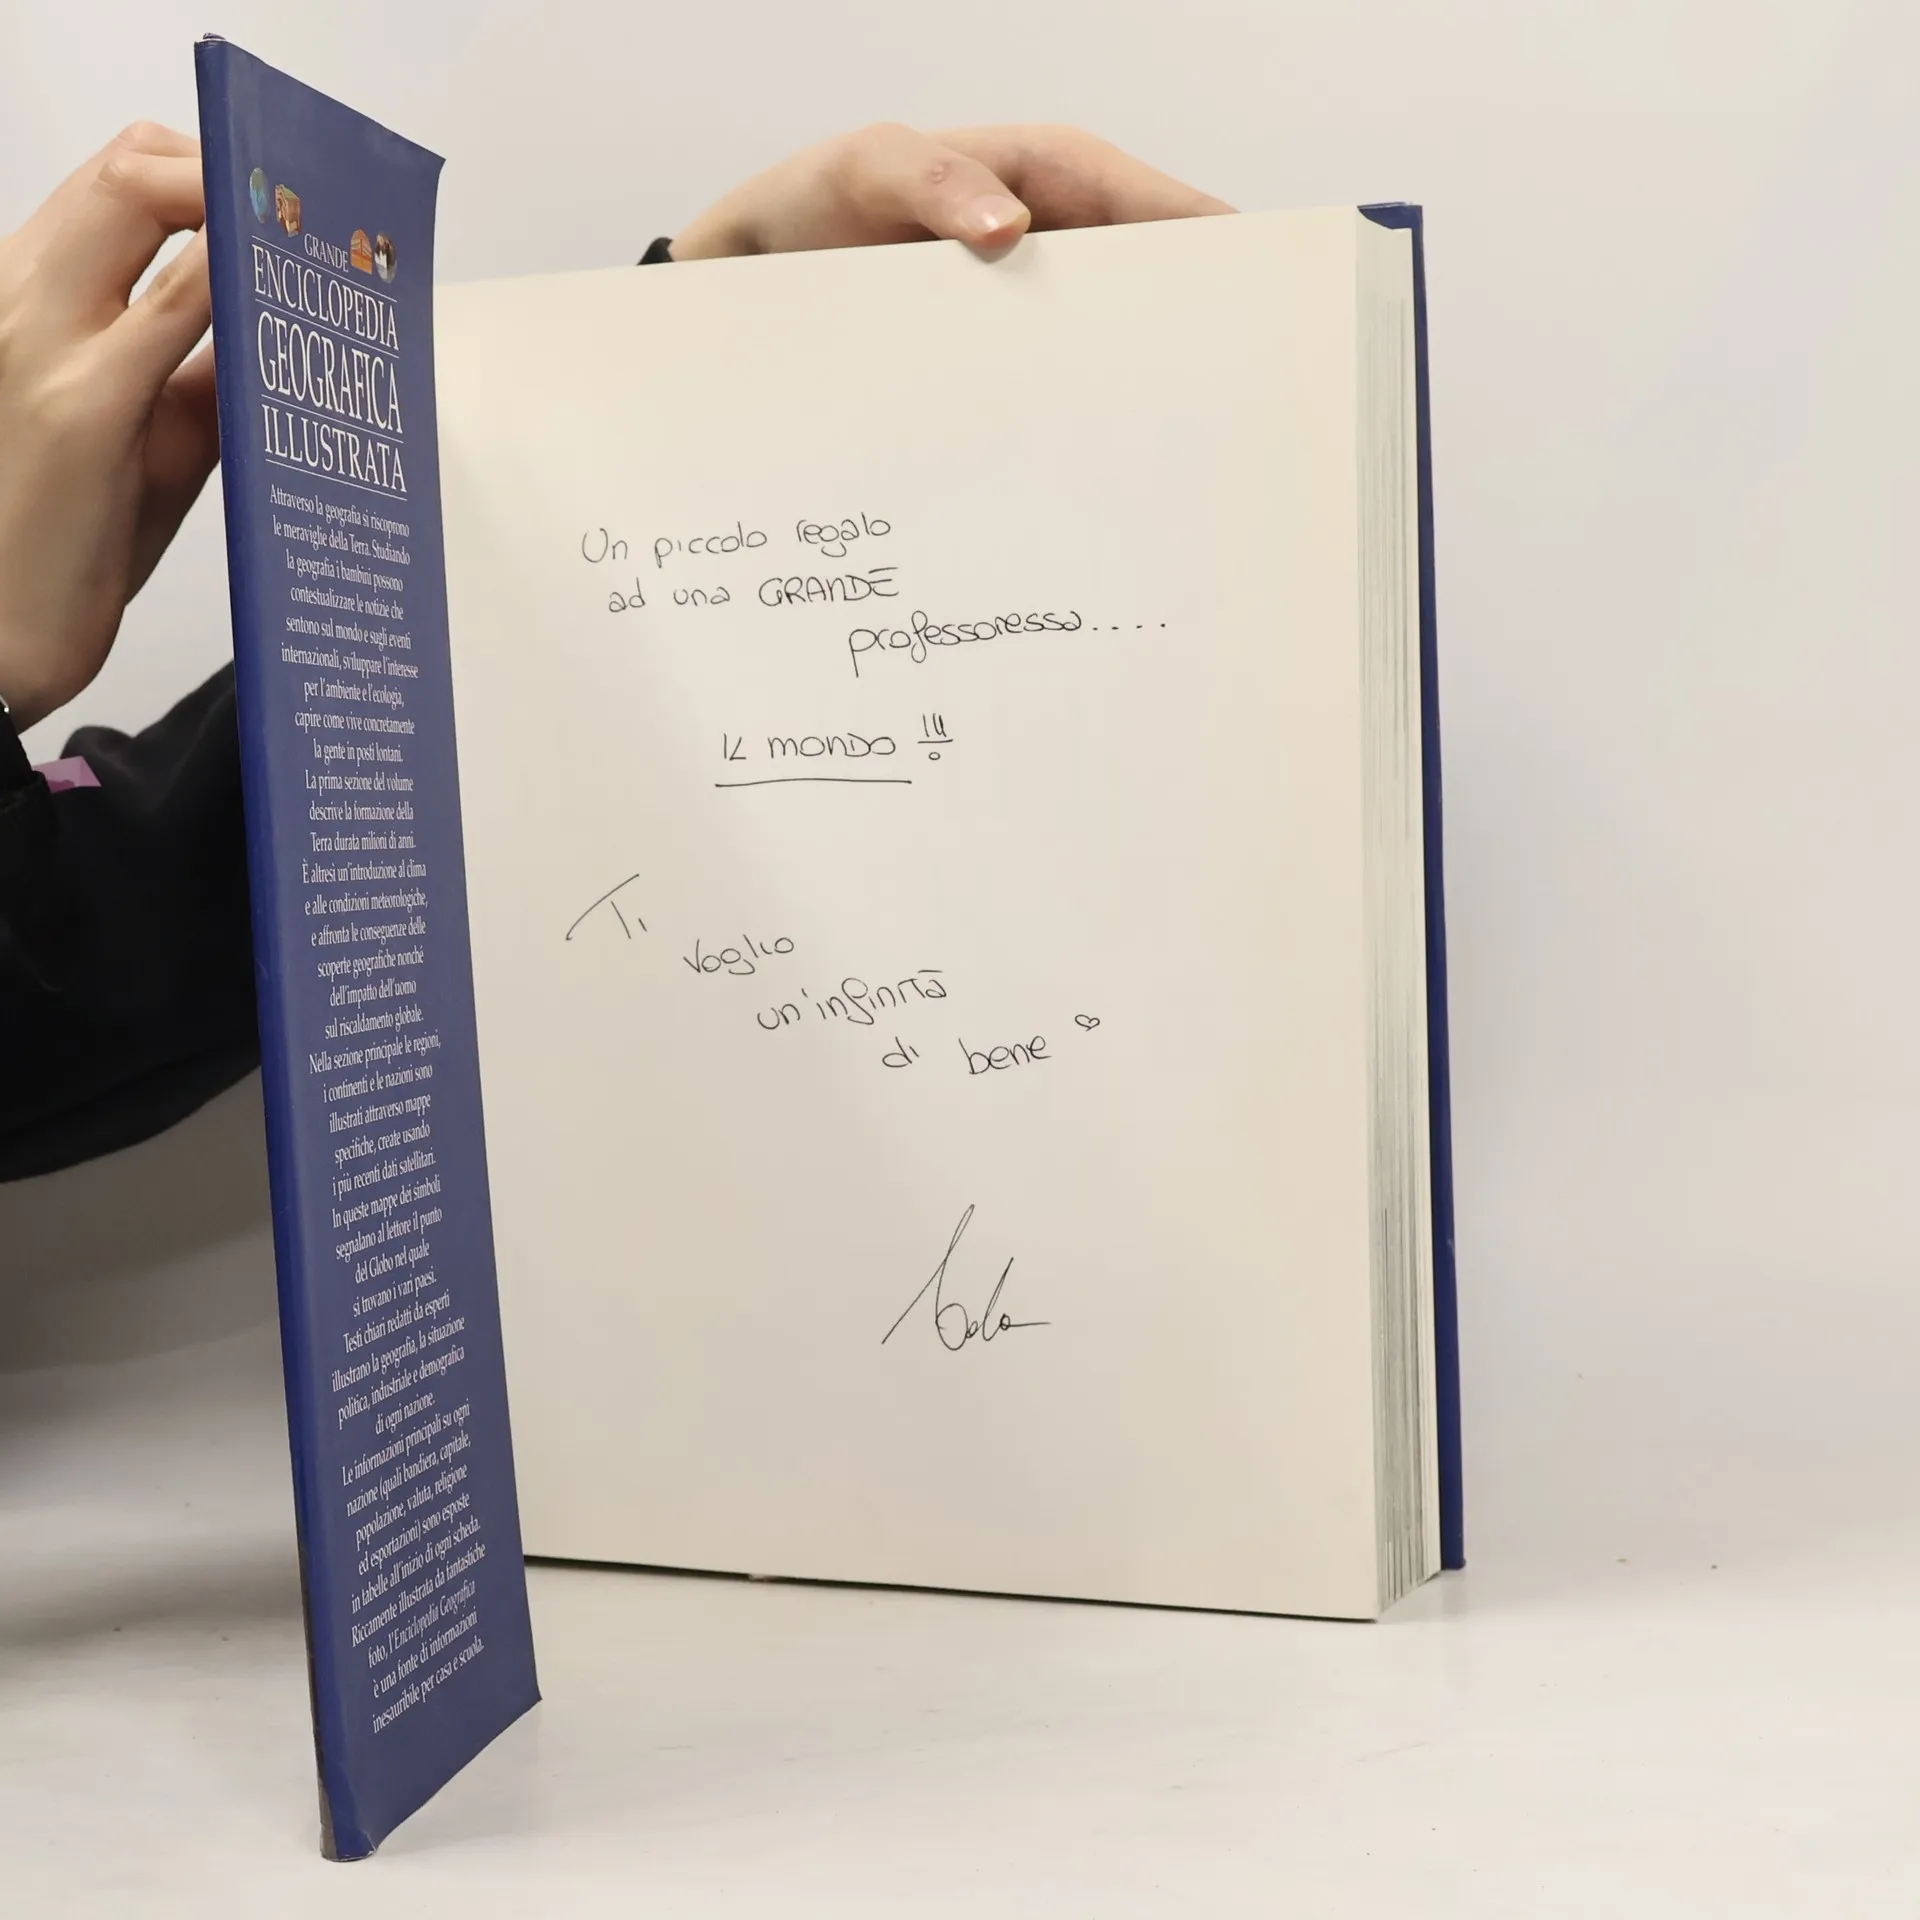 GRANDE
ENCICLOPEDIA
GEOGRAFICA
ILLUSTRATA
Attraverso la geografia si riscoprono
le meraviglie della Terra. Studiando
la geografia i bambini possono
contestualizzare le notizie che
sentono sul mondo e sugli eventi
internazionali, sviluppare l'interesse
per l'ambiente e l'ecologia,
capire come vive concretamente
la gente in posti lontani.
La prima sezione del volume
descrive la formazione della
Terra durata milioni di anni.
È altresì un'introduzione al clima
e alle condizioni meteorologiche,
e affronta le conseguenze delle
scoperte geografiche nonché
dell'impatto dell'uomo
sul riscaldamento globale.
Nella sezione principale le regioni,
i continenti e le nazioni sono
illustrati attraverso mappe
specifiche, create usando
i più recenti dati satellitari.
In queste mappe dei simboli
segnalano al lettore il punto
del Globo nel quale
si trovano i vari paesi.
Testi chiari redatti da esperti
illustrano la geografia, la situazione
politica, industriale e demografica
di ogni nazione.
Le informazioni principali su ogni
nazione (quali bandiera, capitale,
popolazione, valuta, religione
ed esportazioni) sono esposte
in tabelle all'inizio di ogni scheda.
Riccamente illustrata da fantastiche
foto, l'Enciclopedia Geografica
è una fonte di informazioni
inesauribile per casa e scuola.
Un piccolo regalo
ad una GRANDE
professoressa....
IL MONDO
Ti
voglio
un'infinità
di bene